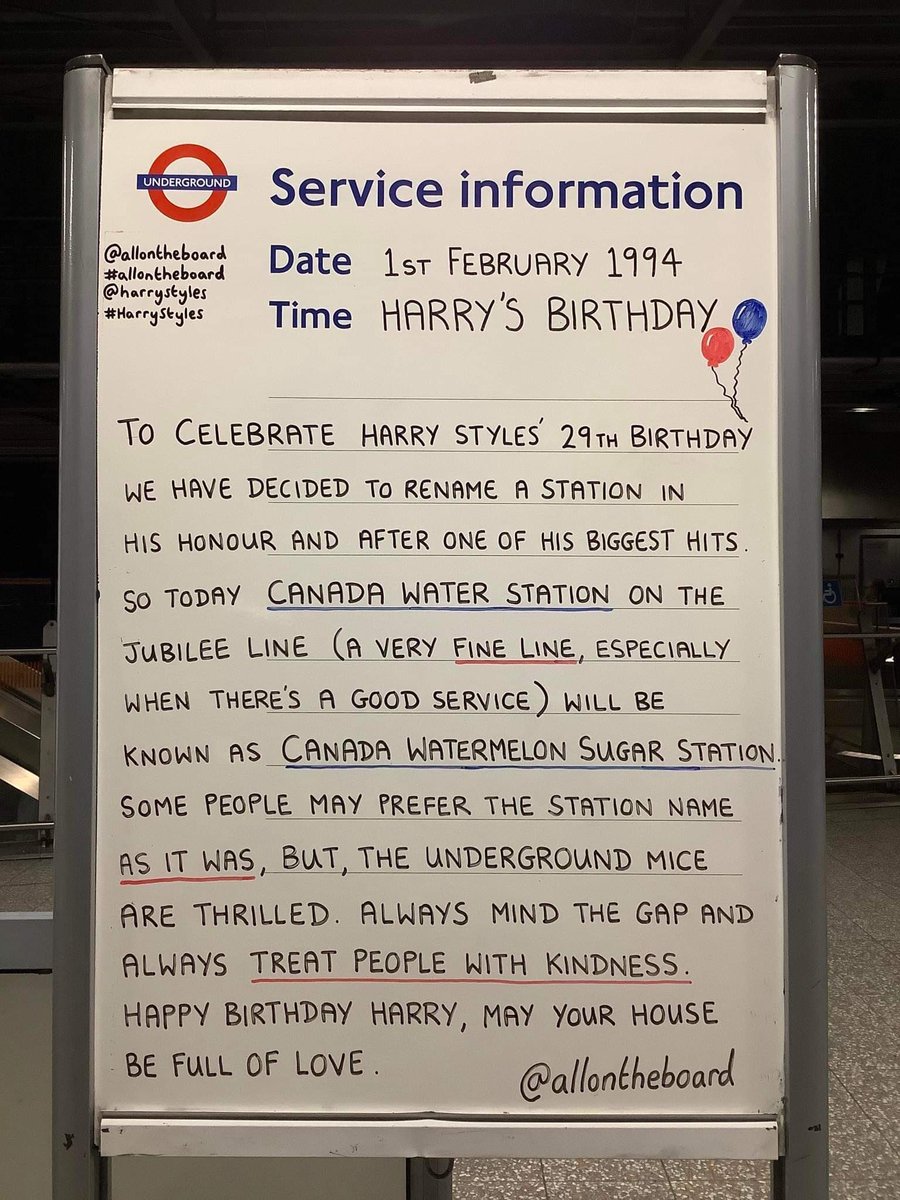 UNDERGROUND
Service information
@allontheboard
#allontheboard
@harrystyles
#HarryStyles
Date 1ST FEBRUARY 1994
Time HARRY'S BIRTHDAY
TO CELEBRATE HARRY STYLES' 29TH BIRTHDAY
WE HAVE DECIDED TO RENAME A STATION IN
HIS HONOUR AND AFTER ONE OF HIS BIGGEST HITS.
SO TODAY CANADA WATER STATION ON THE
JUBILEE LINE (A VERY FINE LINE, ESPECIALLY
WHEN THERE'S A GOOD SERVICE) WILL BE
KNOWN AS CANADA WATERMELON SUGAR STATION.
SOME PEOPLE MAY PREFER THE STATION NAME
AS IT WAS, BUT, THE UNDERGROUND MICE
ARE THRILLED. ALWAYS MIND THE GAP AND
ALWAYS TREAT PEOPLE WITH KINDNESS.
HAPPY BIRTHDAY HARRY, MAY YOUR HOUSE
BE FULL OF LOVE.
@allontheboard